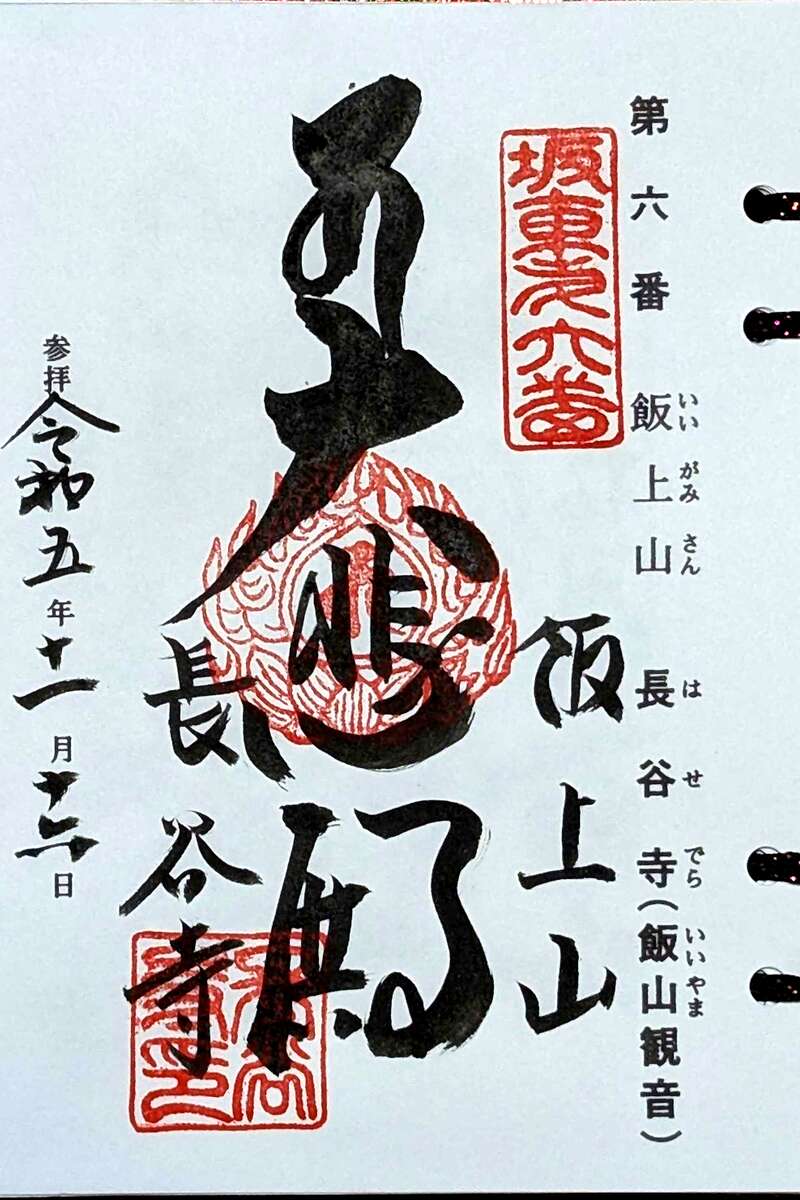 第六番 飯上山 長谷寺(飯山観音)
いいがみさん はせでら いいやま
坂東第六番
飯上山
大悲殿
長谷寺
長谷寺印
参拝 令和五年十一月十六日